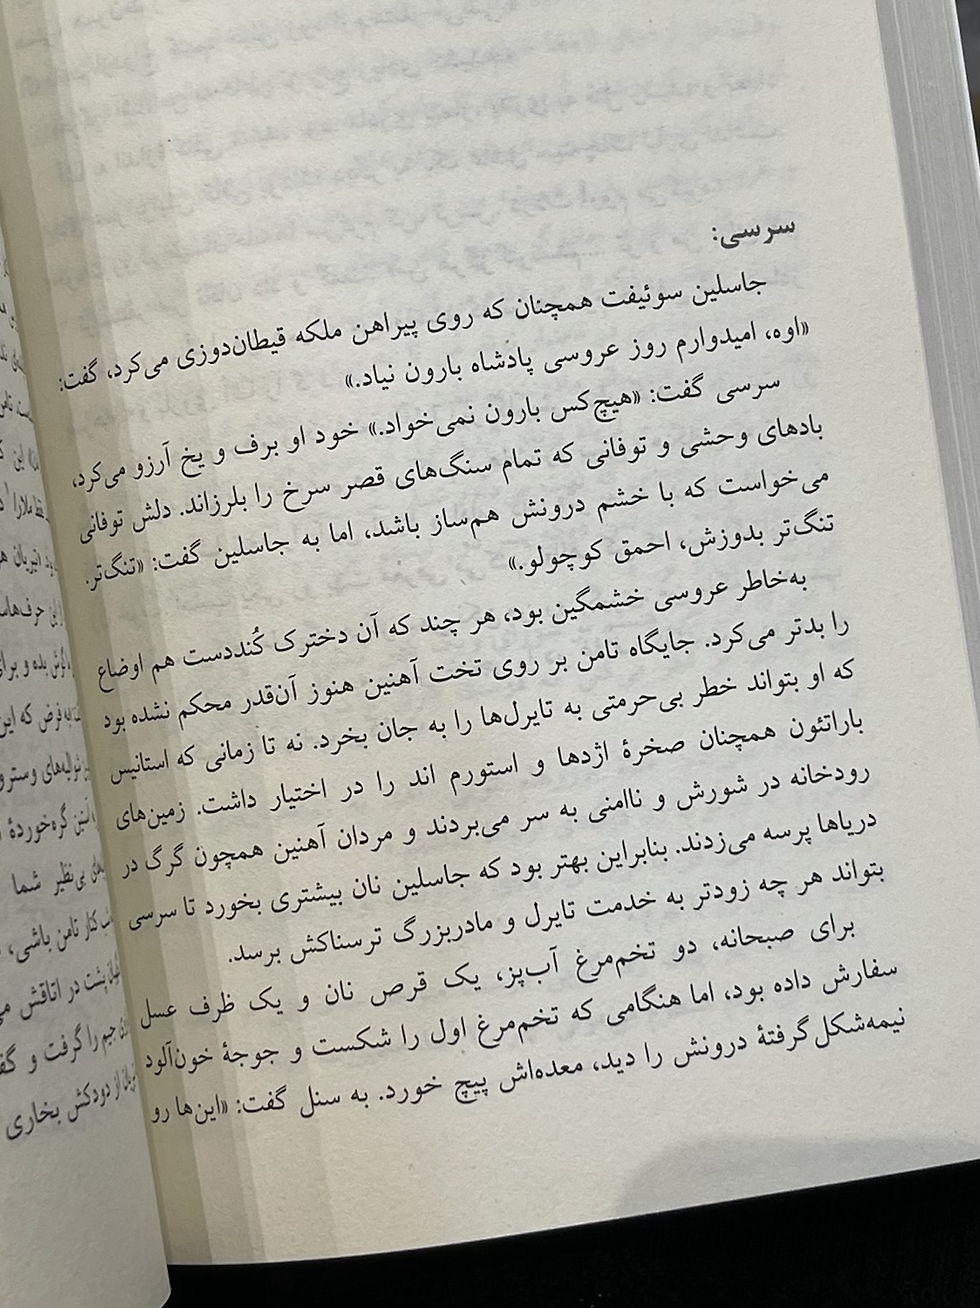 سرسی:
جاسلین سوئیفت همچنان که روی پیراهن ملکه قیطان‌دوزی می‌کرد، گفت:
«اوه، امیدوارم روز عروسی پادشاه بارون نیاد.»
سرسی گفت: «هیچ‌کس بارون نمی‌خواد.» خود او برف و یخ آرزو می‌کرد،
بادهای وحشی و توفانی که تمام سنگ‌های قصر سرخ را بلرزاند. دلش توفانی
می‌خواست که با خشم درونش هم‌ساز باشد، اما به جاسلین گفت: «تنگ‌تر.
تنگ‌تر بدوزش، احمق کوچولو.»
به‌خاطر عروسی خشمگین بود، هر چند که آن دخترک کُنددست هم اوضاع
را بدتر می‌کرد. جایگاه تامن بر روی تخت آهنین هنوز آن‌قدر محکم نشده بود
که او بتواند خطر بی‌حرمتی به تایرل‌ها را به جان بخرد. نه تا زمانی که استانیس
باراتئون همچنان صخرهٔ اژدها و استورم اند را در اختیار داشت. زمین‌های
رودخانه در شورش و ناامنی به سر می‌بردند و مردان آهنین همچون گرگ در
دریاها پرسه می‌زدند. بنابراین بهتر بود که جاسلین نان بیشتری بخورد تا سرسی
بتواند هر چه زودتر به خدمت تایرل و مادربزرگ ترسناکش برسد.
برای صبحانه، دو تخم‌مرغ آب‌پز، یک قرص نان و یک ظرف عسل
سفارش داده بود، اما هنگامی که تخم‌مرغ اول را شکست و جوجهٔ خون‌آلود
نیمه‌شکل‌گرفتهٔ درونش را دید، معده‌اش پیچ خورد. به سنل گفت: «این‌ها رو
این
حرف‌هاس
گوش بده و برای
به فرض که این
گره‌خوردهٔ
بی‌نظیر شما
کار تامن باشی،
پشت در اتاقش
جیم را گرفت و گف
از دودکش بخاری